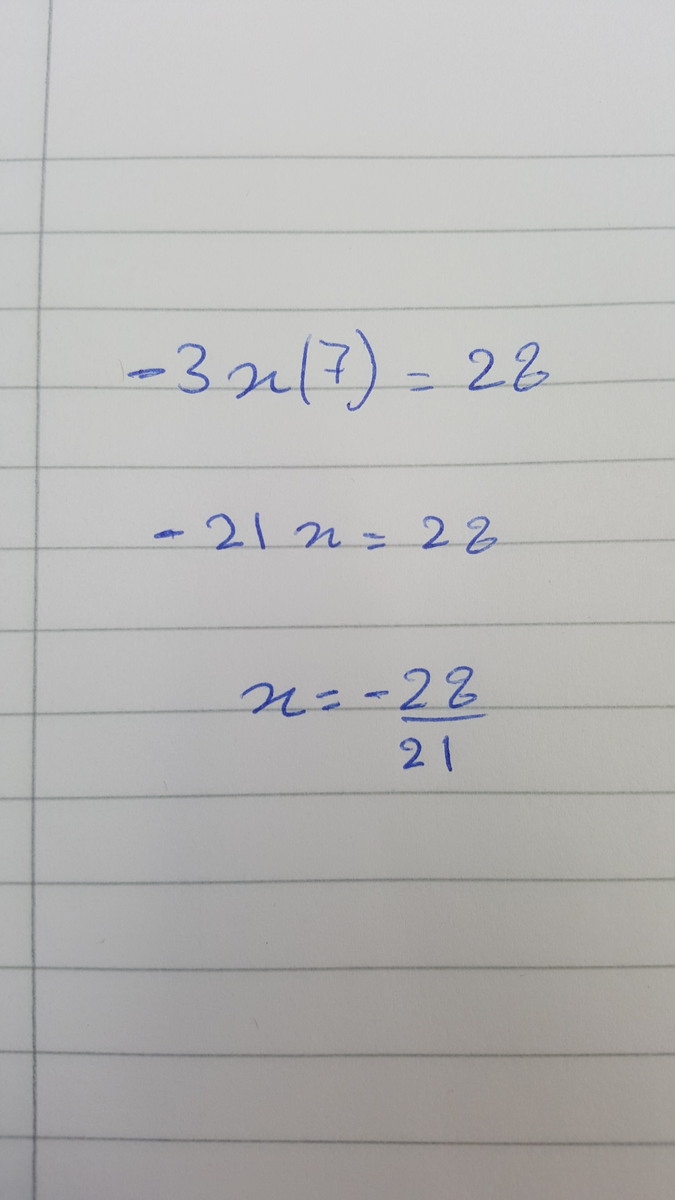 -3x(7) = 28
-21x = 28
x = -28/21